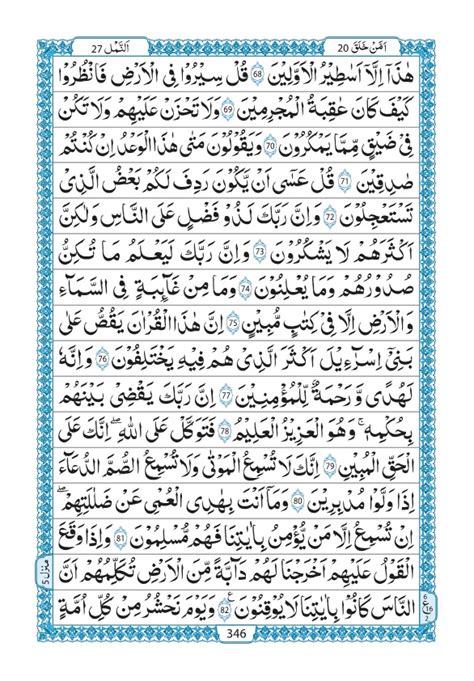 اَمَّنْ خَلَقَ 20
اَلنَّمْل 27
هٰذَاۤ اِلَّاۤ اَسَاطِيْرُ الْاَوَّلِيْنَ 68 قُلْ سِيْرُوْا فِى الْاَرْضِ فَانْظُرُوْا
كَيْفَ كَانَ عَاقِبَةُ الْمُجْرِمِيْنَ 69 وَلَا تَحْزَنْ عَلَيْهِمْ وَلَا تَكُنْ
فِىْ ضَيْقٍ مِّمَّا يَمْكُرُوْنَ 70 وَيَقُوْلُوْنَ مَتٰى هٰذَا الْوَعْدُ اِنْ كُنْتُمْ
صٰدِقِيْنَ 71 قُلْ عَسٰۤى اَنْ يَّكُوْنَ رَدِفَ لَكُمْ بَعْضُ الَّذِىْ
تَسْتَعْجِلُوْنَ 72 وَاِنَّ رَبَّكَ لَذُوْ فَضْلٍ عَلَى النَّاسِ وَلٰكِنَّ
اَكْثَرَهُمْ لَا يَشْكُرُوْنَ 73 وَاِنَّ رَبَّكَ لَيَعْلَمُ مَا تُكِنُّ
صُدُوْرُهُمْ وَمَا يُعْلِنُوْنَ 74 وَمَا مِنْ غَآئِبَةٍ فِى السَّمَآءِ
وَالْاَرْضِ اِلَّا فِىْ كِتٰبٍ مُّبِيْنٍ 75 اِنَّ هٰذَا الْقُرْاٰنَ يَقُصُّ عَلٰى
بَنِىْۤ اِسْرَآءِيْلَ اَكْثَرَ الَّذِىْ هُمْ فِيْهِ يَخْتَلِفُوْنَ 76 وَاِنَّهٗ
لَهُدًى وَّرَحْمَةٌ لِّلْمُؤْمِنِيْنَ 77 اِنَّ رَبَّكَ يَقْضِىْ بَيْنَهُمْ
بِحُكْمِهٖ ۚ وَهُوَ الْعَزِيْزُ الْعَلِيْمُ 78 فَتَوَكَّلْ عَلَى اللّٰهِ ؕ اِنَّكَ عَلَى
الْحَقِّ الْمُبِيْنِ 79 اِنَّكَ لَا تُسْمِعُ الْمَوْتٰى وَلَا تُسْمِعُ الصُّمَّ الدُّعَآءَ
اِذَا وَلَّوْا مُدْبِرِيْنَ 80 وَمَاۤ اَنْتَ بِهٰدِى الْعُمْىِ عَنْ ضَلٰلَتِهِمْ ؕ
اِنْ تُسْمِعُ اِلَّا مَنْ يُّؤْمِنُ بِاٰيٰتِنَا فَهُمْ مُّسْلِمُوْنَ 81 وَاِذَا وَقَعَ
الْقَوْلُ عَلَيْهِمْ اَخْرَجْنَا لَهُمْ دَآبَّةً مِّنَ الْاَرْضِ تُكَلِّمُهُمْ ۙ اَنَّ
النَّاسَ كَانُوْا بِاٰيٰتِنَا لَا يُوْقِنُوْنَ 82 ع وَيَوْمَ نَحْشُرُ مِنْ كُلِّ اُمَّةٍ
منزل 5
6
ع 16
2
346